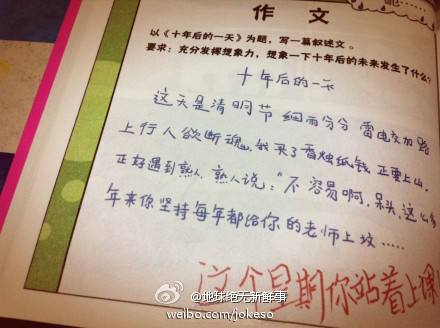 作 文
以《十年后的一天》为题，写一篇叙述文。
要求：充分发挥想象力，想象一下十年后的未来发生了什么？
十年后的一天
这天是清明节 细雨分分 雷电交加 路
上行人欲断魂，我买了香烛纸钱 正要上山，
正好遇到熟人，熟人说："不容易啊，呆头，这么多
年来你坚持每年都给你的老师上坟……
这个星期你站着上课
@地球绝无新鲜事
weibo.com/jokeso